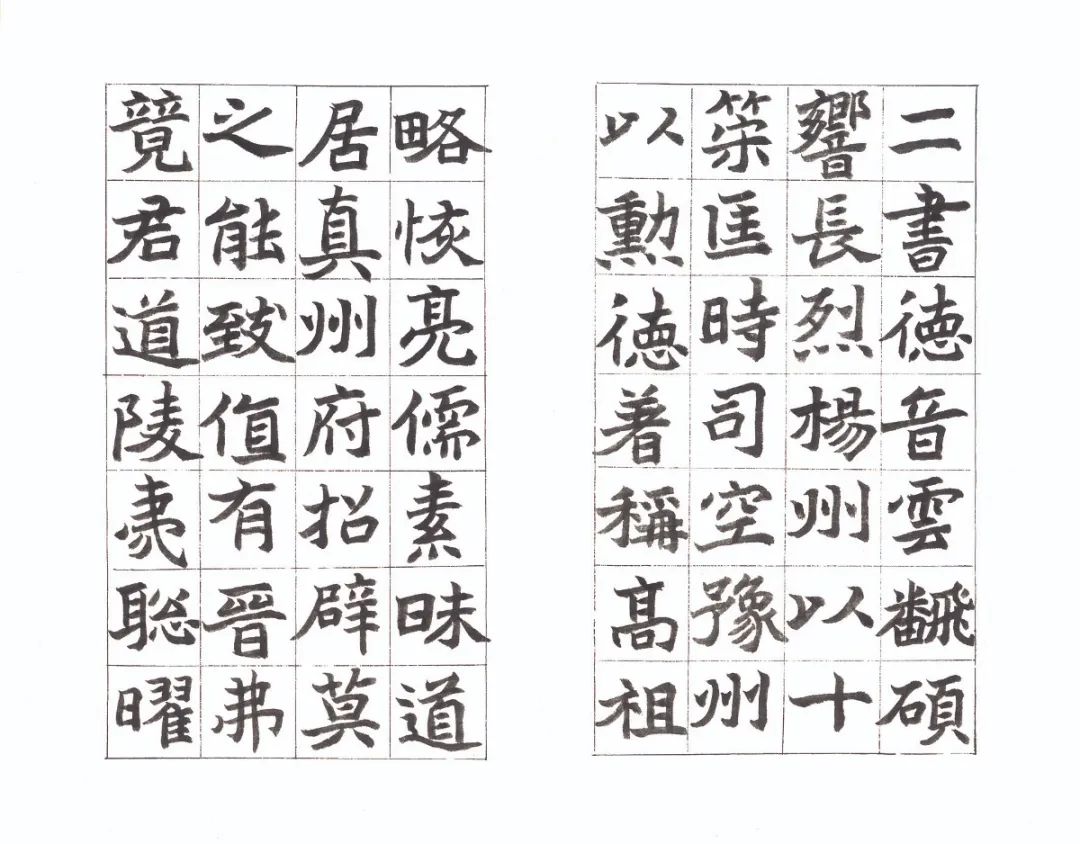 二書德音雲飜碩
響長烈楊州以十
策匡時司空豫州
以勲德著稱高祖
略恢亮儒素味道
居真州府招辟莫
之能致值有晉弗
竟君道陵夷聡曜